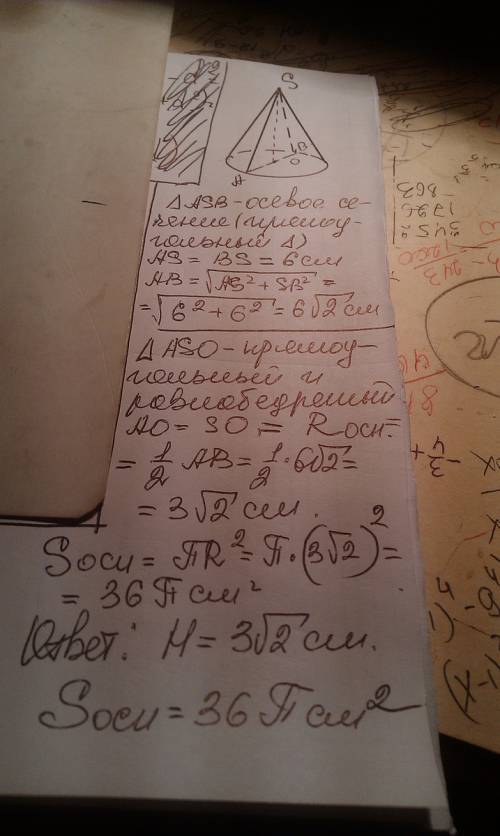 S
A
B
O
ΔASB-осевое се-
чение (прямоу-
гольный Δ)
AS = BS = 6 см
AB = √AS² + SB² =
= √6² + 6² = 6√2 см
ΔASO - прямоу-
гольный и
равнобедренный
AO = SO = Rосн. =
= 1/2 AB = 1/2 · 6√2 =
= 3√2 см.
Sосн = πR² = π · (3√2)² =
= 36 π см²
Ответ: H = 3√2 см.
Sосн = 36 π см²
863
1726
3452